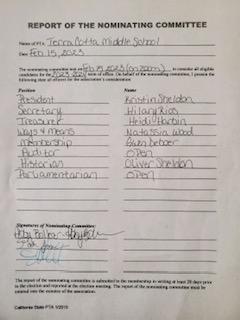 REPORT OF THE NOMINATING COMMITTEE
Name of PTA: Terra Cotta Middle School
Date Feb 15, 2023
The nominating committee met on Feb 15, 2023 (on zoom) to consider all eligible
candidates for the 2023-2024 term of office. On behalf of the nominating committee, I present the
following slate of officers for the association's consideration:
Position Name
President Kristin Sheldon
Secretary Hilary Rios
Treasurer Heidi Harbin
Ways & Means Natassia Wood
Membership Gwen DeBoer
Auditor OPEN
Historian Oliver Sheldon
Parliamentarian OPEN
Signatures of Nominating Committee:
The report of the nominating committee is submitted to the membership in writing at least 28 days prior
to the election and reported at the election meeting. The report of the nominating committee must be
entered into the minutes of the association.
California State PTA